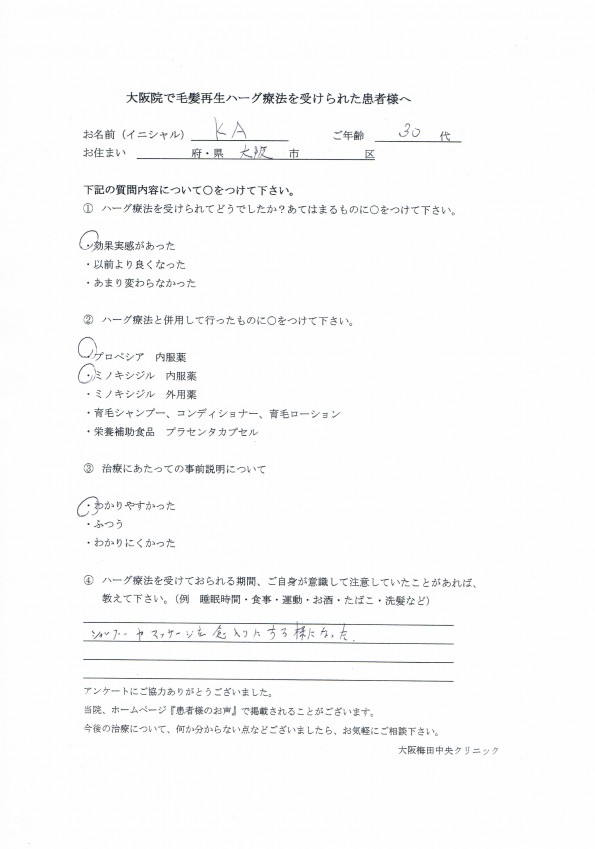 大阪院で毛髪再生ハーグ療法を受けられた患者様へ
お名前（イニシャル） KA ご年齢 30 代
お住まい 府・県 大阪 市 区
下記の質問内容について○をつけて下さい。
① ハーグ療法を受けられてどうでしたか？あてはまるものに○をつけて下さい。
・効果実感があった
・以前より良くなった
・あまり変わらなかった
② ハーグ療法と併用して行ったものに○をつけて下さい。
・プロペシア 内服薬
・ミノキシジル 内服薬
・ミノキシジル 外用薬
・育毛シャンプー、コンディショナー、育毛ローション
・栄養補助食品 プラセンタカプセル
③ 治療にあたっての事前説明について
・わかりやすかった
・ふつう
・わかりにくかった
④ ハーグ療法を受けておられる期間、ご自身が意識して注意していたことがあれば、
教えて下さい。（例 睡眠時間・食事・運動・お酒・たばこ・洗髪など）
シャンプーやマッサージを念入りにする様になった.
アンケートにご協力ありがとうございました。
当院、ホームページ『患者様のお声』で掲載されることがございます。
今後の治療について、何か分からない点などございましたら、お気軽にご相談下さい。
大阪梅田中央クリニック